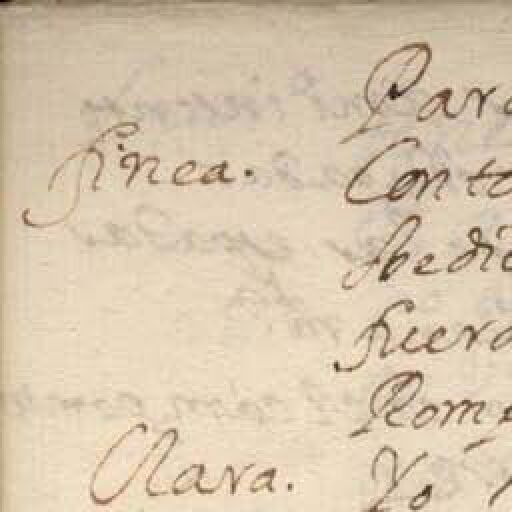 Para
finea. Conto
obedie
fuera
Romp
Clara. Yo